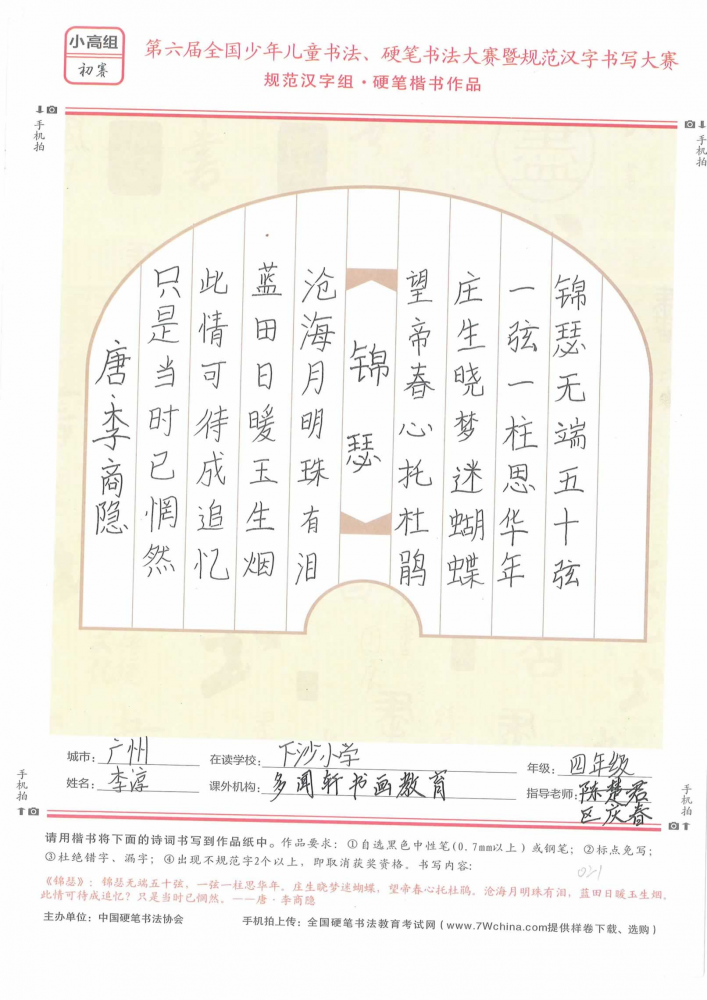 小高组
初赛
第六届全国少年儿童书法、硬笔书法大赛暨规范汉字书写大赛
规范汉字组·硬笔楷书作品
手机拍
手机拍
锦瑟无端五十弦
一弦一柱思华年
庄生晓梦迷蝴蝶
望帝春心托杜鹃
锦瑟
沧海月明珠有泪
蓝田日暖玉生烟
此情可待成追忆
只是当时已惘然
唐·李商隐
城市：广州 在读学校：下沙小学 年级：四年级
姓名：李淳 课外机构：多闻轩书画教育 指导老师：陈楚君
区庆春
手机拍
手机拍
请用楷书将下面的诗词书写到作品纸中。作品要求：①自选黑色中性笔(0.7mm以上)或钢笔；②标点免写；
③杜绝错字、漏字；④出现不规范字2个以上，即取消获奖资格。书写内容：
021
《锦瑟》：锦瑟无端五十弦，一弦一柱思华年。庄生晓梦迷蝴蝶，望帝春心托杜鹃。沧海月明珠有泪，蓝田日暖玉生烟。
此情可待成追忆？只是当时已惘然。——唐·李商隐
主办单位：中国硬笔书法协会 手机拍上传：全国硬笔书法教育考试网(www.7Wchina.com提供样卷下载、选购)